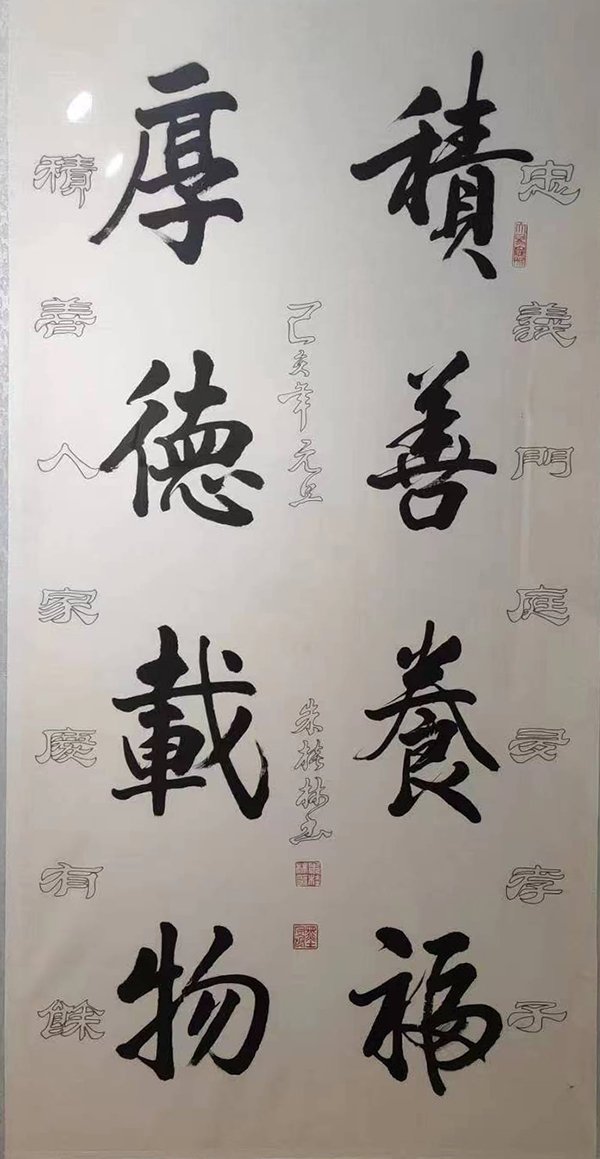 忠義門庭孝子
積善養福
己亥年元旦
朱桂林书
厚德載物
積善人家慶有餘